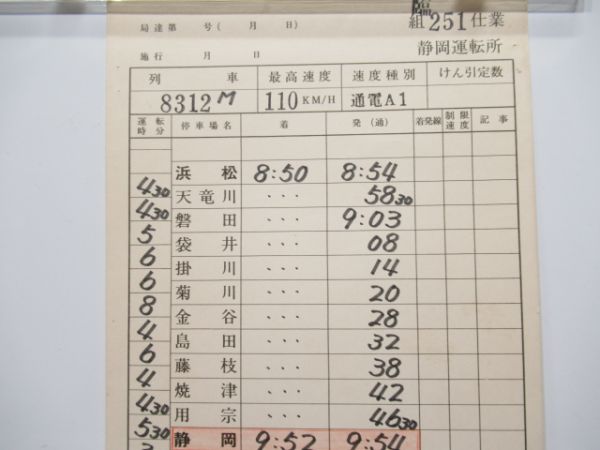 局達第 号( 月 日)
臨
組 251 仕業
施行 月 日
静岡運転所
列 車 最高速度 速度種別 けん引定数
8312M 110 KM/H 通電A1
運転時分 停車場名 着 発(通) 着発線 制限速度 記事
浜松 8:50 8:54
4 30
天竜川 ・・・ 58 30
4 30
磐田 ・・・ 9:03
5
袋井 ・・・ 08
6
掛川 ・・・ 14
6
菊川 ・・・ 20
8
金谷 ・・・ 28
4
島田 ・・・ 32
6
藤枝 ・・・ 38
4
焼津 ・・・ 42
4 30
用宗 ・・・ 46 30
5 30
静岡 9:52 9:54